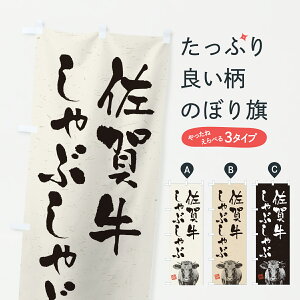 佐賀牛
しゃぶしゃぶ
たっぷり
良い柄
のぼり旗
やったね
えらべる3タイプ
A
B
C
佐賀牛
しゃぶしゃぶ
佐賀牛
しゃぶしゃぶ
佐賀牛
しゃぶしゃぶ